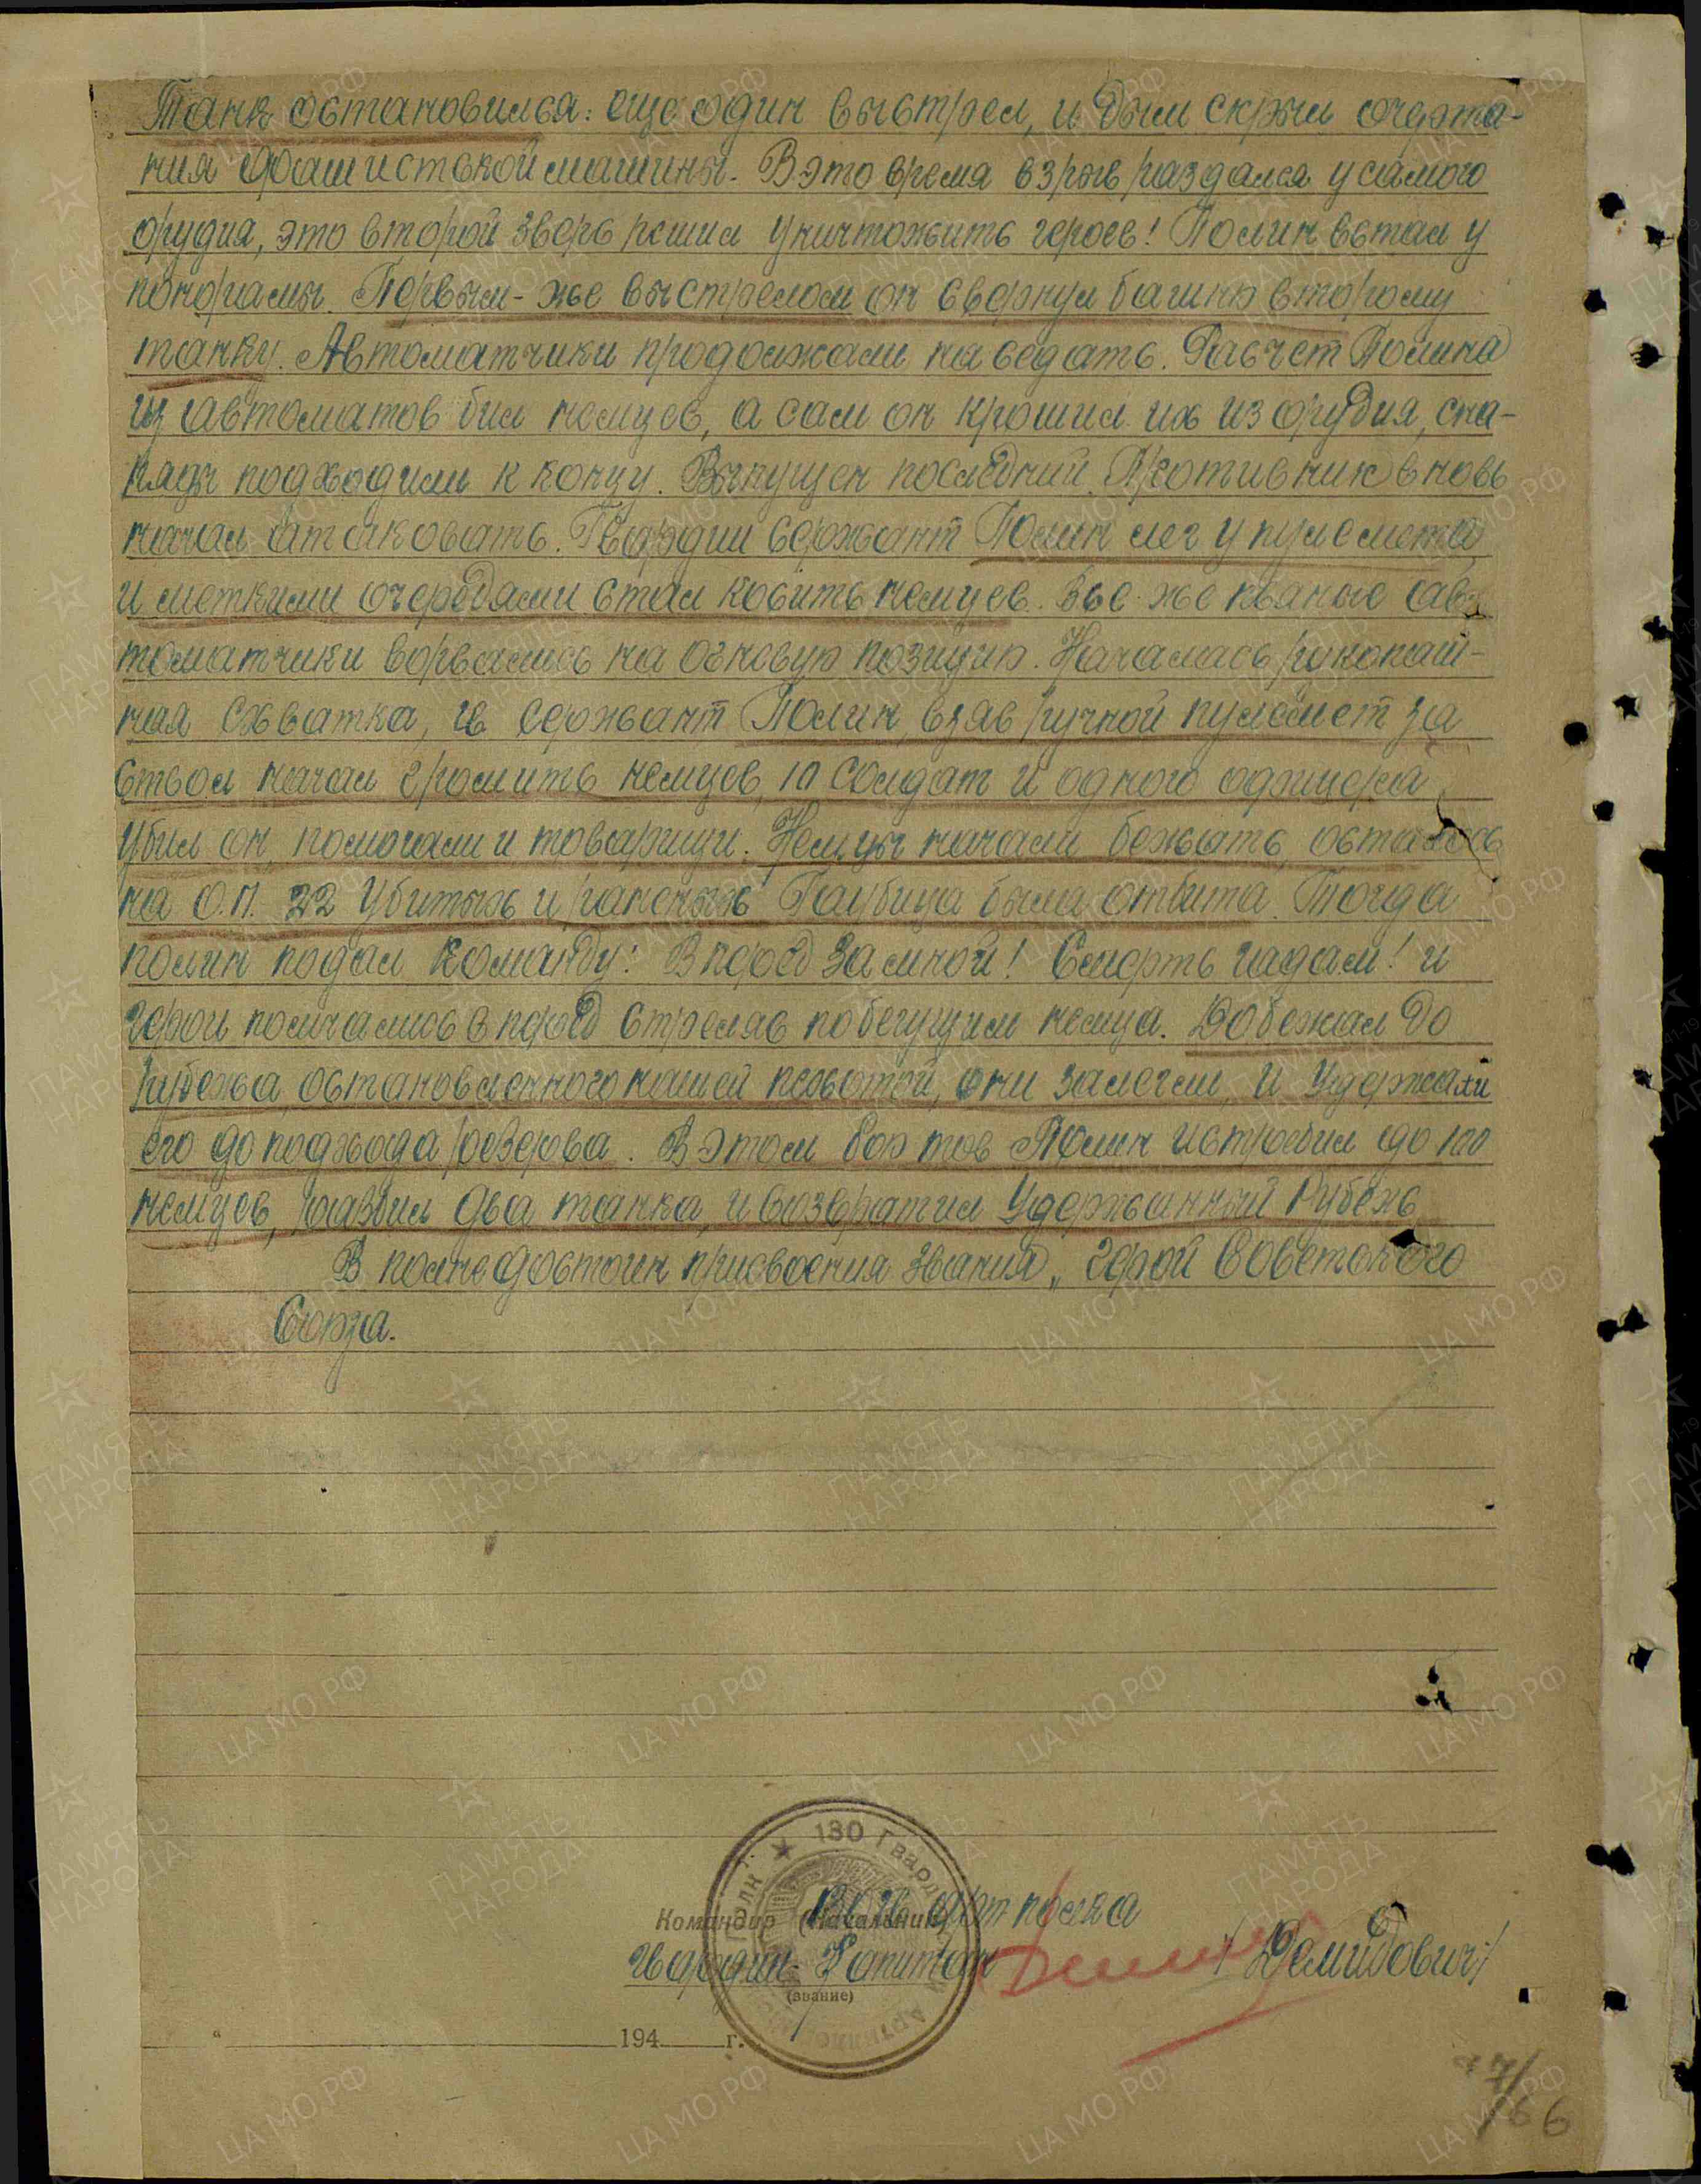 Танк остановился: еще один выстрел, и дым скрыл очерта-
ния фашистской машины. В это время взрыв раздался у самого
орудия, это второй зверь решил уничтожить героев! Полин встал у
понорамы. Первым-же выстрелом он свернул башню второму
танку. Автоматчики продолжали наседать. Расчет Полина
из автоматов бил немцев, а сам он крошил их из орудия, сна-
ряды подходили к концу. Выпущен последний. Противник вновь
начал атаковать. Гвардии сержант Полин лег у пулемета
и меткими очередями стал косить немцев. Все же пьяные ав-
томатчики ворвались на огневую позицию. Началась рукопаш-
ная схватка, гв сержант Полин, взяв ручной пулемет за
ствол начал громить немцев, 10 солдат и одного офицера
убил он, помогали и товарищи. Немцы начали бежать, осталось
на О.П. 22 убитых и раненых Гаубица была отбита. Тогда
полин подал команду: Вперед за мной! Смерть гадам! и
герои помчались вперед стреляв по бегущим немца. Добежал до
рубежа, остановленного нашей пехотой, они залегли, и удержали
его до подхода резерва. В этом бою тов Полин истребил до 100
немцев, разбил два танка, и возвратил удержанный рубеж
В полне достоин присвоения звания „Герой Советского
Союза.
★ 130 Гвард
Полк
130 гв арт полка
Командир (Начальник)
гвардии Капитан /Демидович/
(звание)
"
194 г.
77/
166
ПАМЯТЬ НАРОДА
ЦА МО РФ